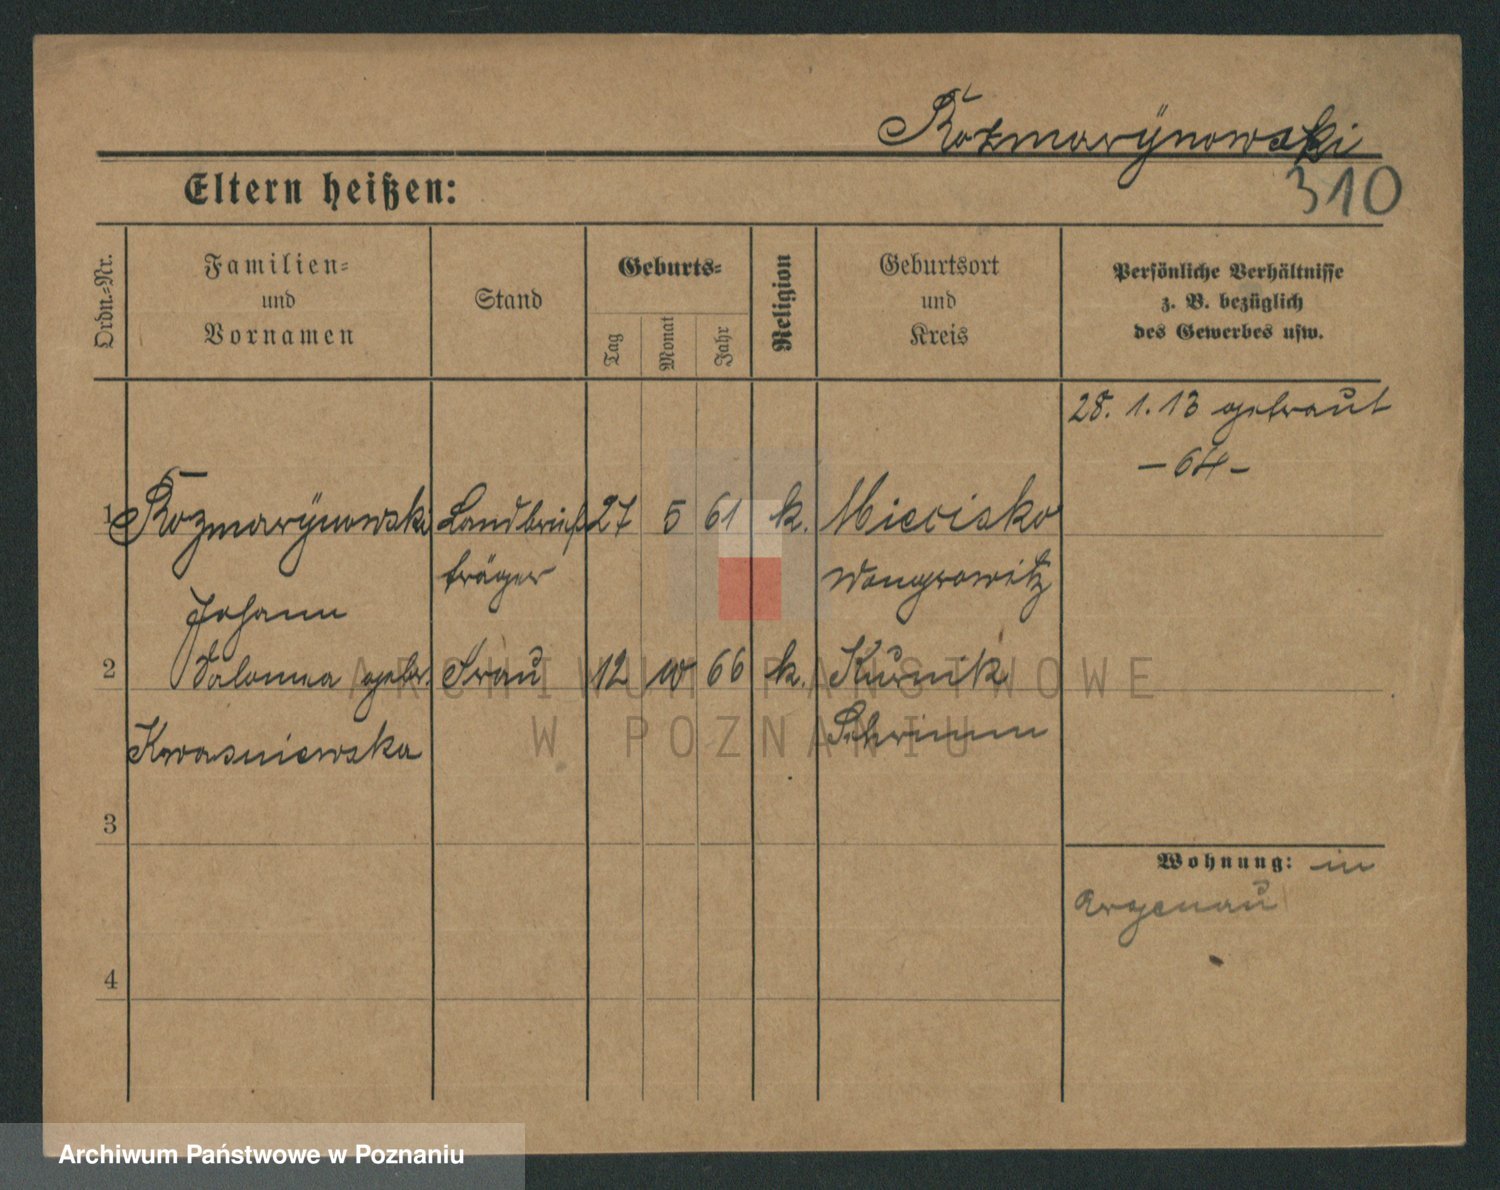 Rozmarÿnowski
310
Eltern heißen:
Ordn.-Nr.
Familien-
und
Vornamen
Stand
Geburts-
Tag
Monat
Jahr
Religion
Geburtsort
und
Kreis
Persönliche Verhältnisse
z. B. bezüglich
des Gewerbes usw.
28. 1. 13 getraut
- 64 -
1 Rozmarÿnowski Landbrief 27 5 61 k. Miecisko
träger Wongrowitz
Johann
2 Salomea gebr. Frau 12 66 k. Kurnik
Kwasniewska Schrimm
3
Wohnung: in
Argenau
4
ARCHIWUM PAŃSTWOWE
W POZNANIU
Archiwum Państwowe w Poznaniu